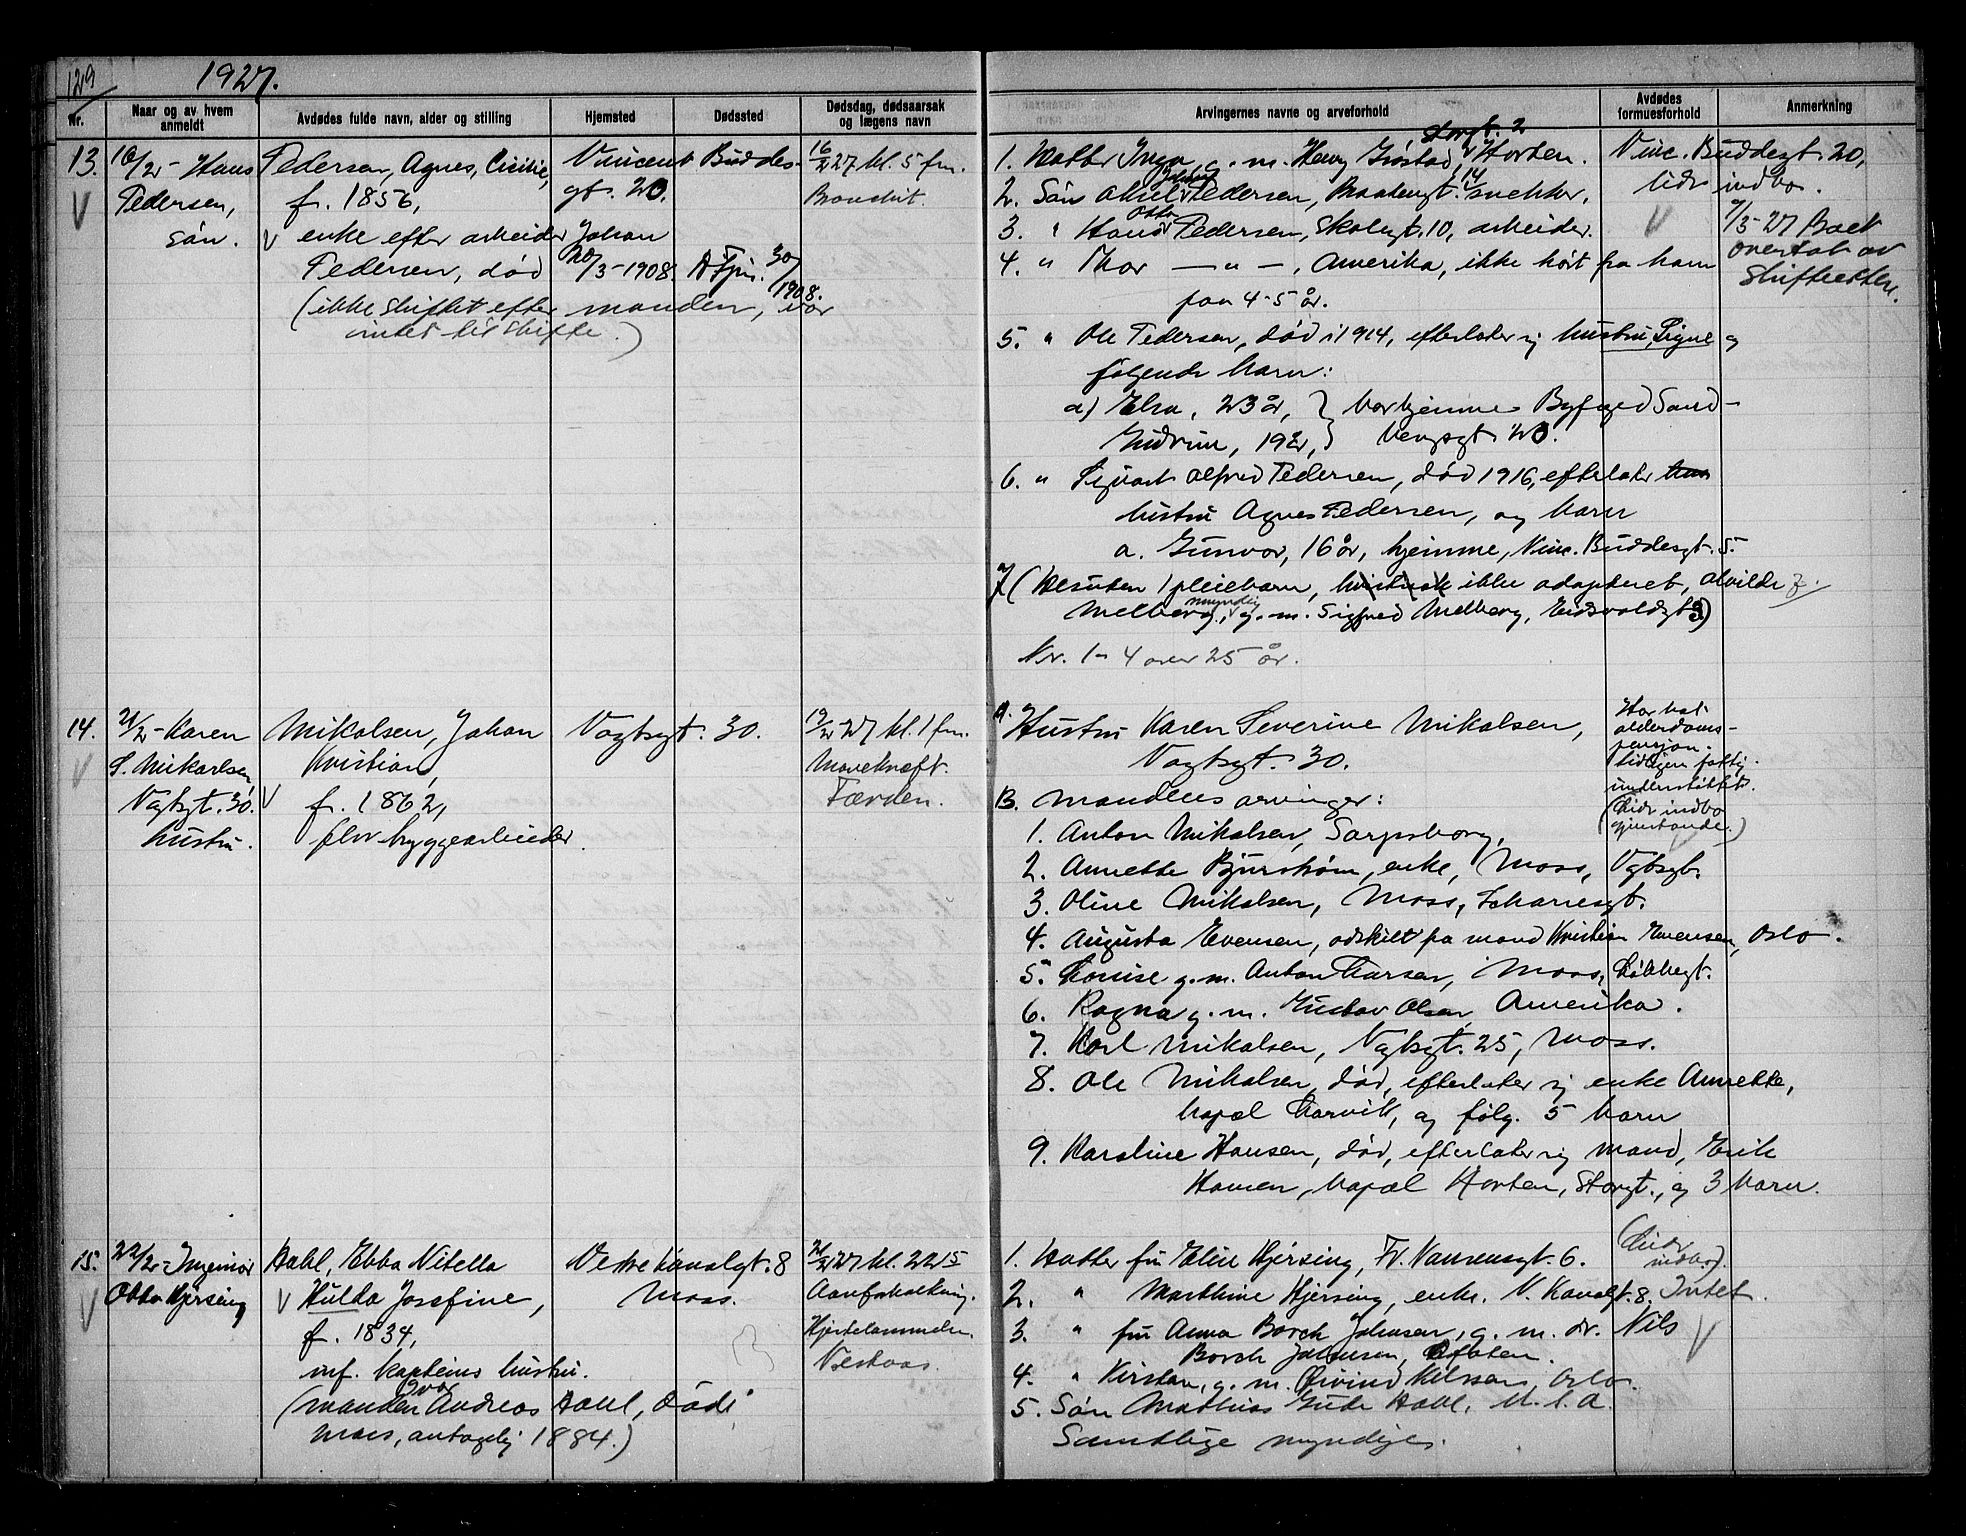 129
1927.
Nr.
Naar og av hvem
anmeldt
Avdødes fulde navn, alder og stilling
Hjemsted
Dødssted
Dødsdag, dødsaarsak
og lægens navn
Arvingernes navne og arveforhold
Avdødes
formuesforhold
Anmerkning
13.
16/2 - Hans
Pedersen,
søn.
Pedersen, Agnes, Cicilie,
f. 1856,
enke efter arbeider Johan
Pedersen, død 20/3-1908. 30/
1908.
(ikke skiftet efter manden, var
intet til skifte.)
Vincent Buddes-
gt. 20.
16/2 27 kl. 5 fm.
Bronkit.
Storgt. 2
1. Datter Inga, g. m. Henry Grøstad, Horten.
2. Søn Aksel Pedersen, Baatengt. 14 snekker.
3. " Hans Otto Pedersen, Skolegt. 10, arbeider.
4. " Thor — " —, Amerika, ikke hørt fra ham
paa 4-5 år.
5. " Ole Pedersen, død i 1914, efterlater sig hustru, Signe og
følgende barn:
a) Elsa, 23 år, } børhjemme Byfoged Sand-
Gudrun, 19 år, } bergsgt. 20.
6. " Sigvart Alfred Pedersen, død 1916, efterlater
hustru Agnes Pedersen, og barn
a. Gunvor, 16 år, hjemme, Vinc. Buddesgt. 5.
7 (Desuten 1 pleiebarn, ikke adopteret, Alvilde
Melberg, myndig, g. m. Sigfred Melberg, Eidsvoldgt. 3)
Nr. 1 - 4 over 25 år.
Vinc. Buddesgt. 20,
lidt indbo.
7/3-27 Boet
overtat av
Skifteretten.
14.
21/2 - Karen
S. Mikalsen,
Vogtsgt. 30.
hustru.
Mikalsen, Johan
Kristian,
f. 1862,
fhv. bryggearbeider.
Vogtsgt. 30.
19/2-27 kl. 1 fm.
Mavekræft.
Færden.
A. Hustru Karen Severine Mikalsen,
Vogtsgt. 30.
B. Mandens arvinger:
1. Anton Mikalsen, Sarpsborg,
2. Annette Bjurstrøm, enke, Moss, Vogtsgt.
3. Oline Mikalsen, Moss, Kchanesgt.
4. Augusta Evensen, adskilt fra mand Kristian Evensen, Oslo.
5. Louise g. m. Anton Larsen, Moss,
6. Ragna g. m. Gustav Olsen, Amerika.
7. Karl Mikalsen, Vogtsgt. 25, Moss.
8. Ole Mikalsen, død, efterlater sig enke Annette,
bopæl Larvik, og følg. 5 barn
9. Karoline Hansen, død, efterlater sig mand, Erik
Hansen, bopæl Horten, Storgt., og 3 barn.
Har hat
alderdoms-
pensjon.
tidligere fattig-
understøttet.
(Lidt indbo
gjenstande.)
15.
22/2 - Ingeniør
Otto Hjersing
Dahl, Ebba Nitella
Hulda Josefine,
f. 1834,
inf. kapteins hustru.
(manden var Andreas Dahl, død i
Moss, antagelig 1884.)
Vestre kanalgt. 8
Moss.
21/2 27 kl. 22 15
Aareforkalkning.
Hjertelammelse.
Vestaas.
1. Datter fru Eline Hjersing, Fr. Nansensgt. 6.
2. " Mathine Hjersing, enke. V. Kanalgt. 8.
3. " fru Anna Borch Johnsen, g. m. dr. Nils
Borch Johnsen,
4. " Kirsten, g. m. Øivind Nilssen, Oslo.
5. Søn Mathias Gude Dahl, U. S. A.
Samtlige myndige.
(Lidt
indbo).
Intet.